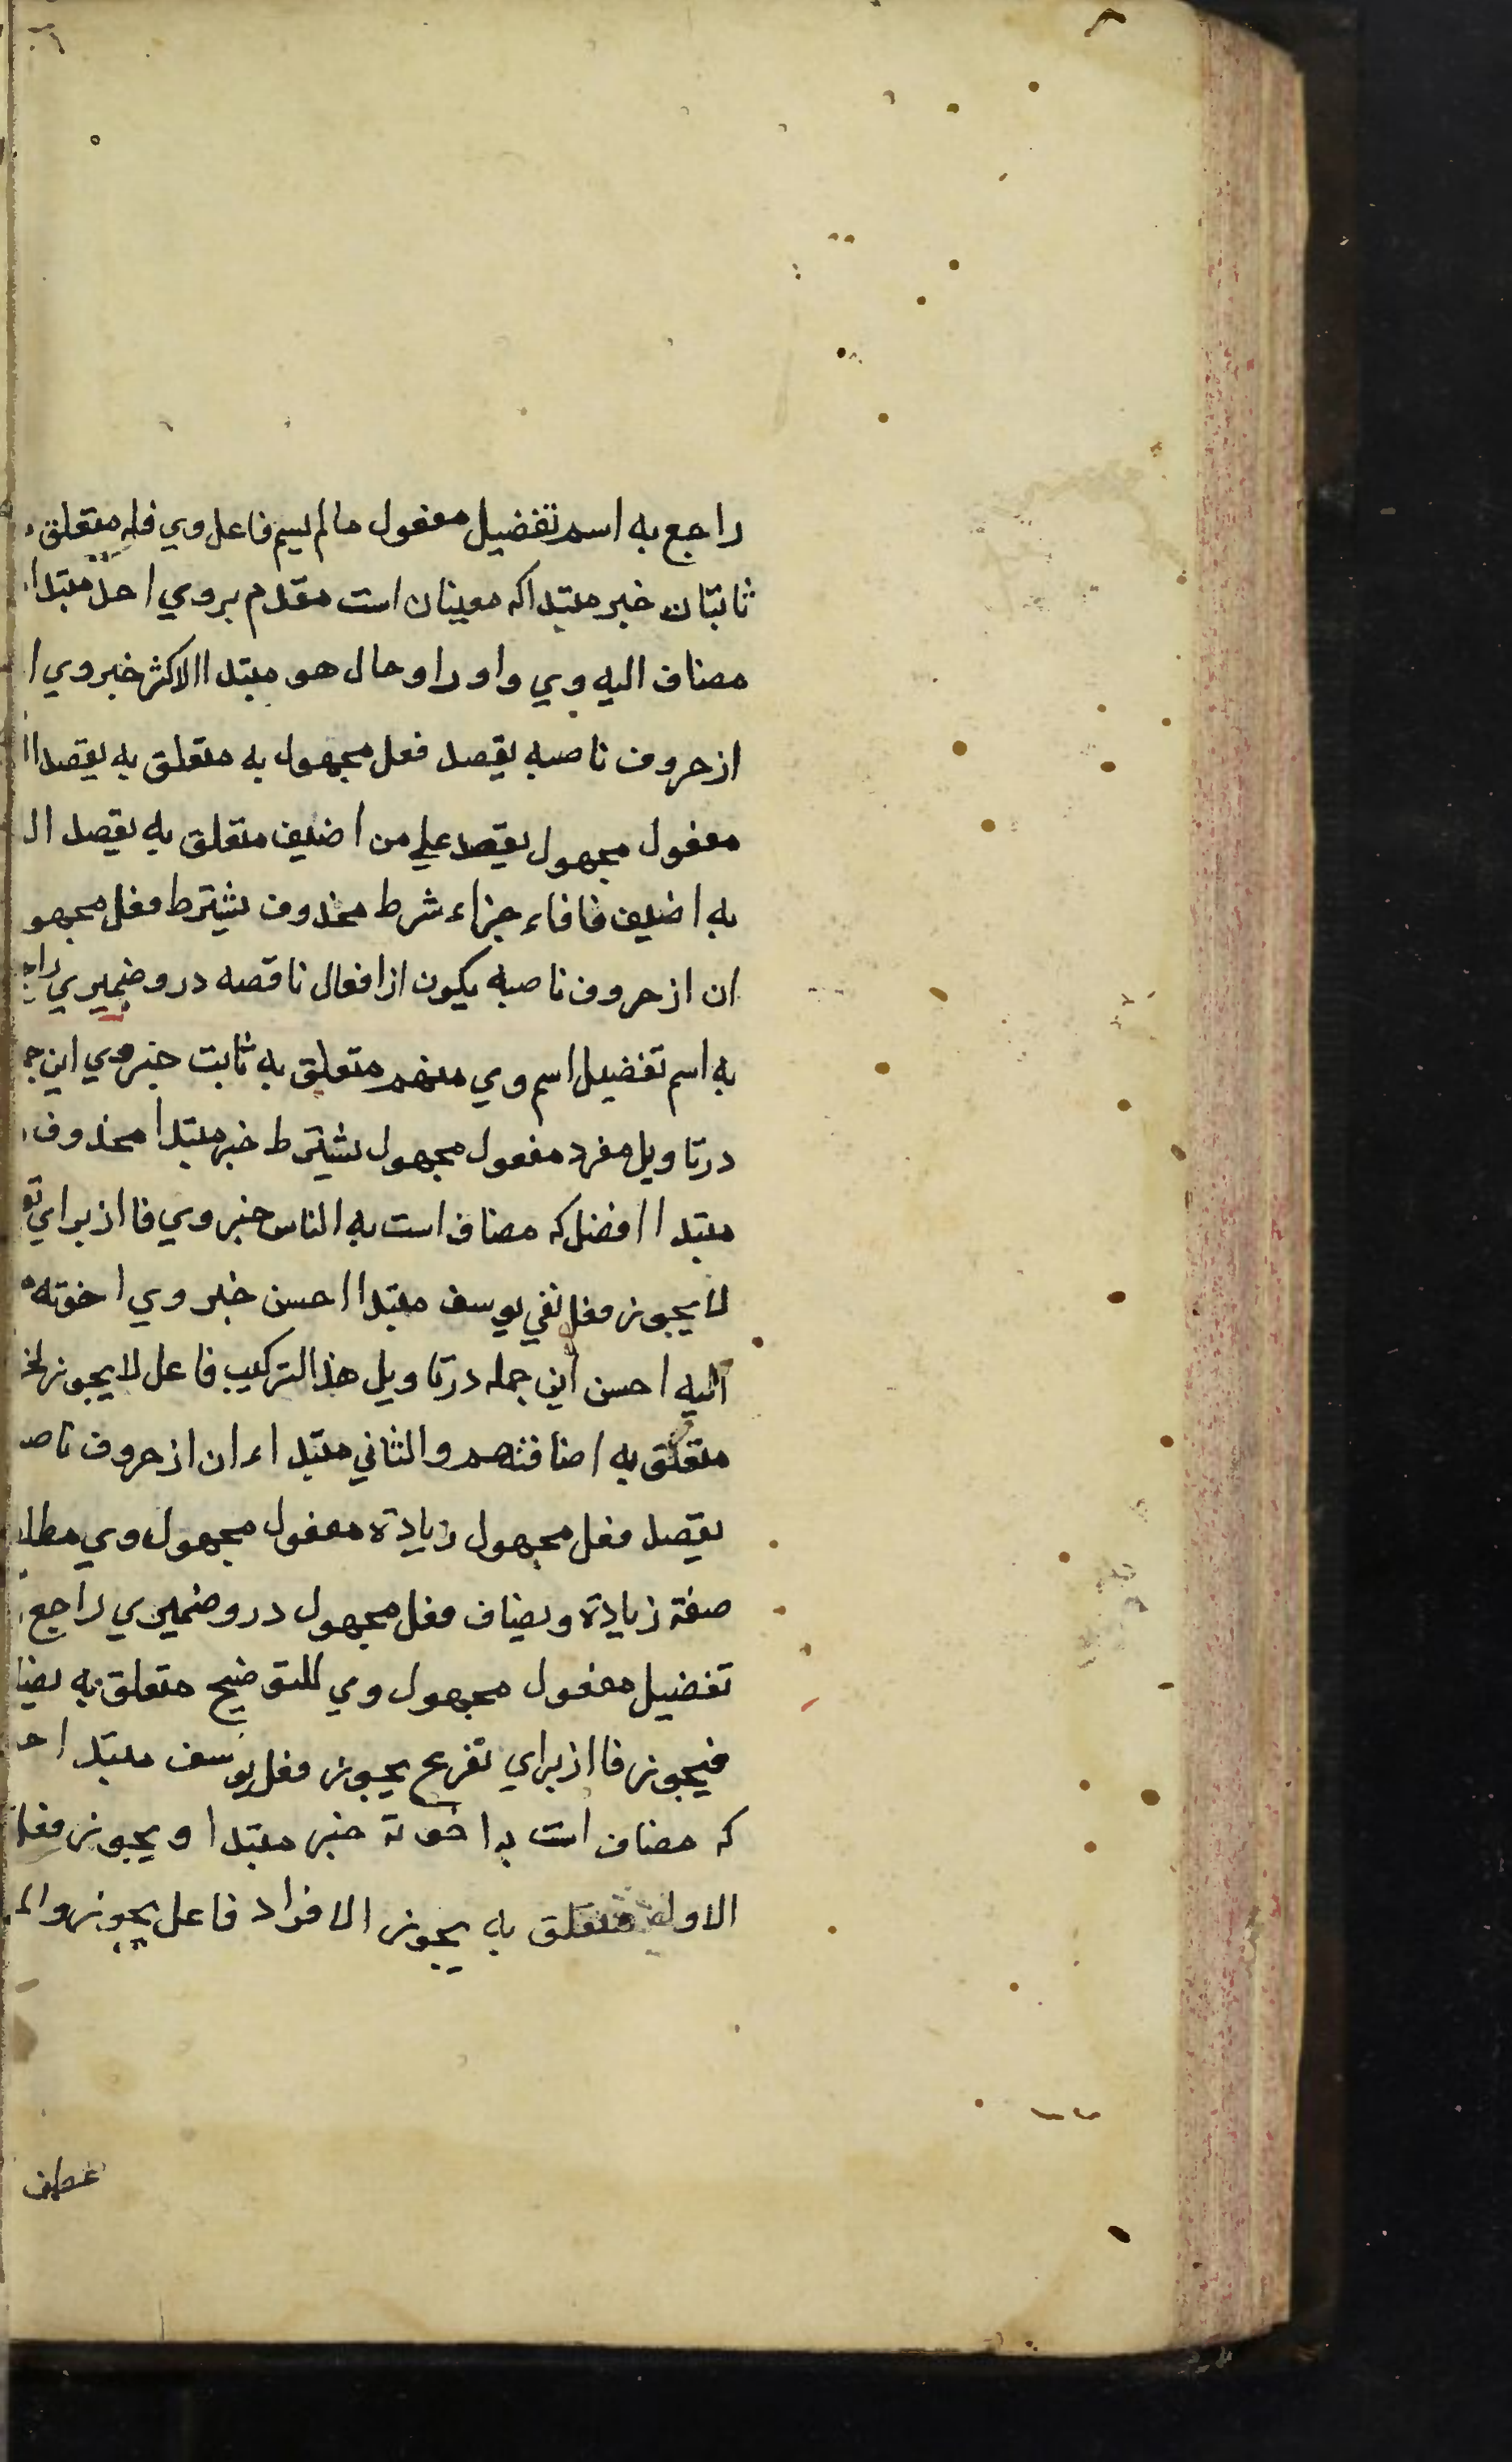 راجع به اسم تفضيل مفعول مالم يسم فاعل وي فله متعلق
ثابتان خبر مبتدا كه معينان است مقدم بروي احد مبتدا
مضاف اليه وي واو واو حال هو مبتدا الاكثر خبر وي ا
از حروف ناصبه يقصد فعل مجهول به متعلق به يقصد ا
مفعول مجهول يقصد علي من اضيف متعلق به يقصد ال
به اضيف فا فاء جزاء شرط محذوف يشترط فعل مجهو
ان از حروف ناصبه يكون از افعال ناقصه درو ضميري راجع
به اسم تفضيل اسم وي منهم متعلق به ثابت خبر وي اين ج
درتاويل مفرد مفعول مجهول يشترط خبر مبتدا محذوف
مبتدا افضل كه مضاف است به الناس خبر وي فا از براي تف
لا يجوز فعل نفي يوسف مبتدا احسن خبر وي اخوته
اليه احسن اين جمله درتاويل هذا التركيب فاعل لا يجوز لخ
متعلق به اضافتهم والثاني مبتداء ان از حروف ناصـ
يقصد فعل مجهول زيادة مفعول مجهول وي مطلـ
صفة زيادة ويضاف فعل مجهول درو ضميري راجع
تفضيل مفعول مجهول وي للتوضيح متعلق به يضا
فيجوز فا از براي تفرع يجوز فعل يوسف مبتدا احـ
كه مضاف است به اخوته خبر مبتدا ويجوز فعل
الاول متعلق به يجوز الافراد فاعل يجوز والم
عطف